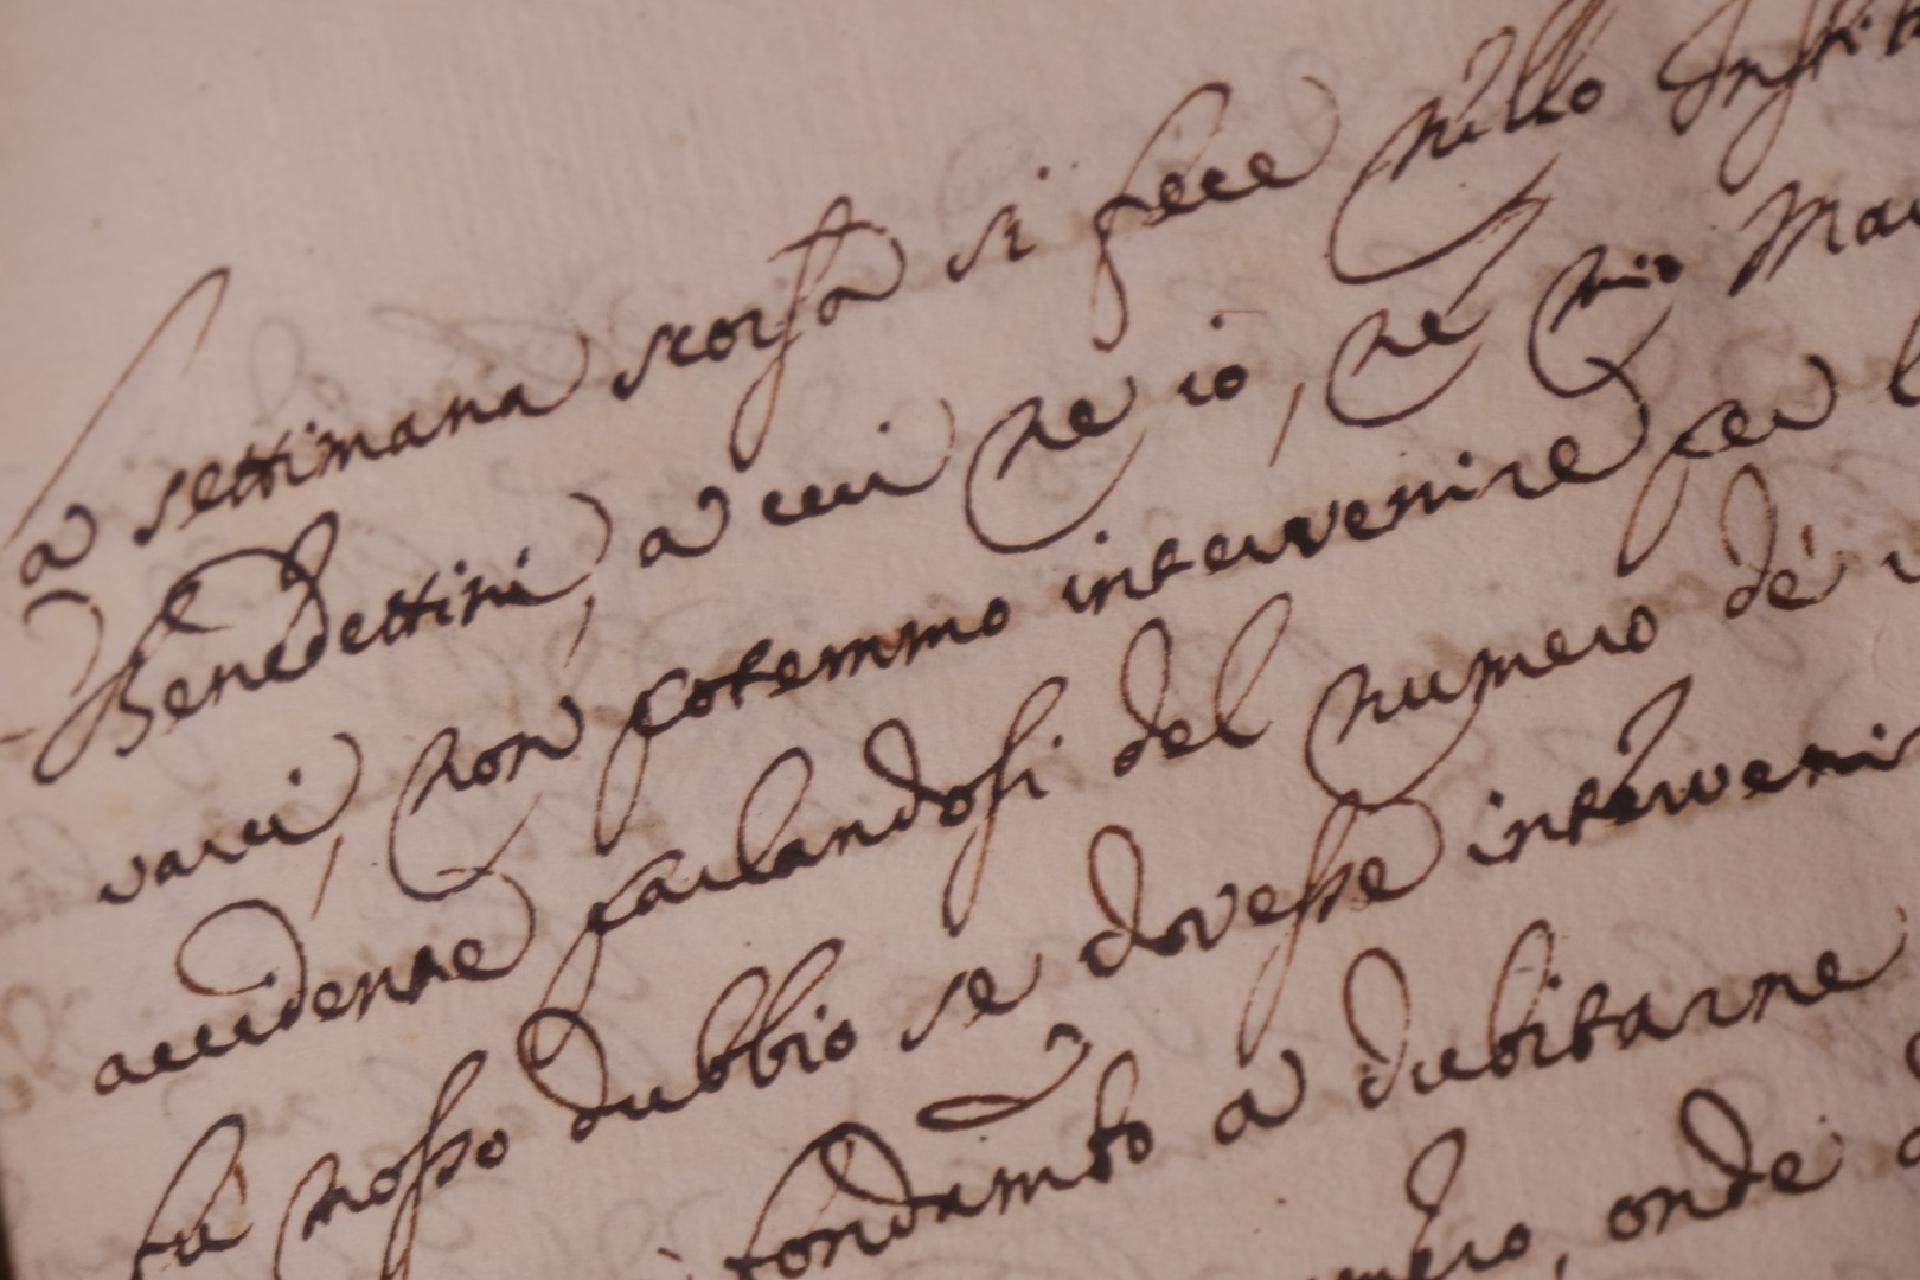 a settimana scorsa si fece nello Instit
Benedettini, a cui ne io, ne mio Mar
varci, non potemmo intervenire per l
accidente parlandosi del numero de'
fu mosso dubbio se dovesse interveni
fondamto a dubitarne
onde